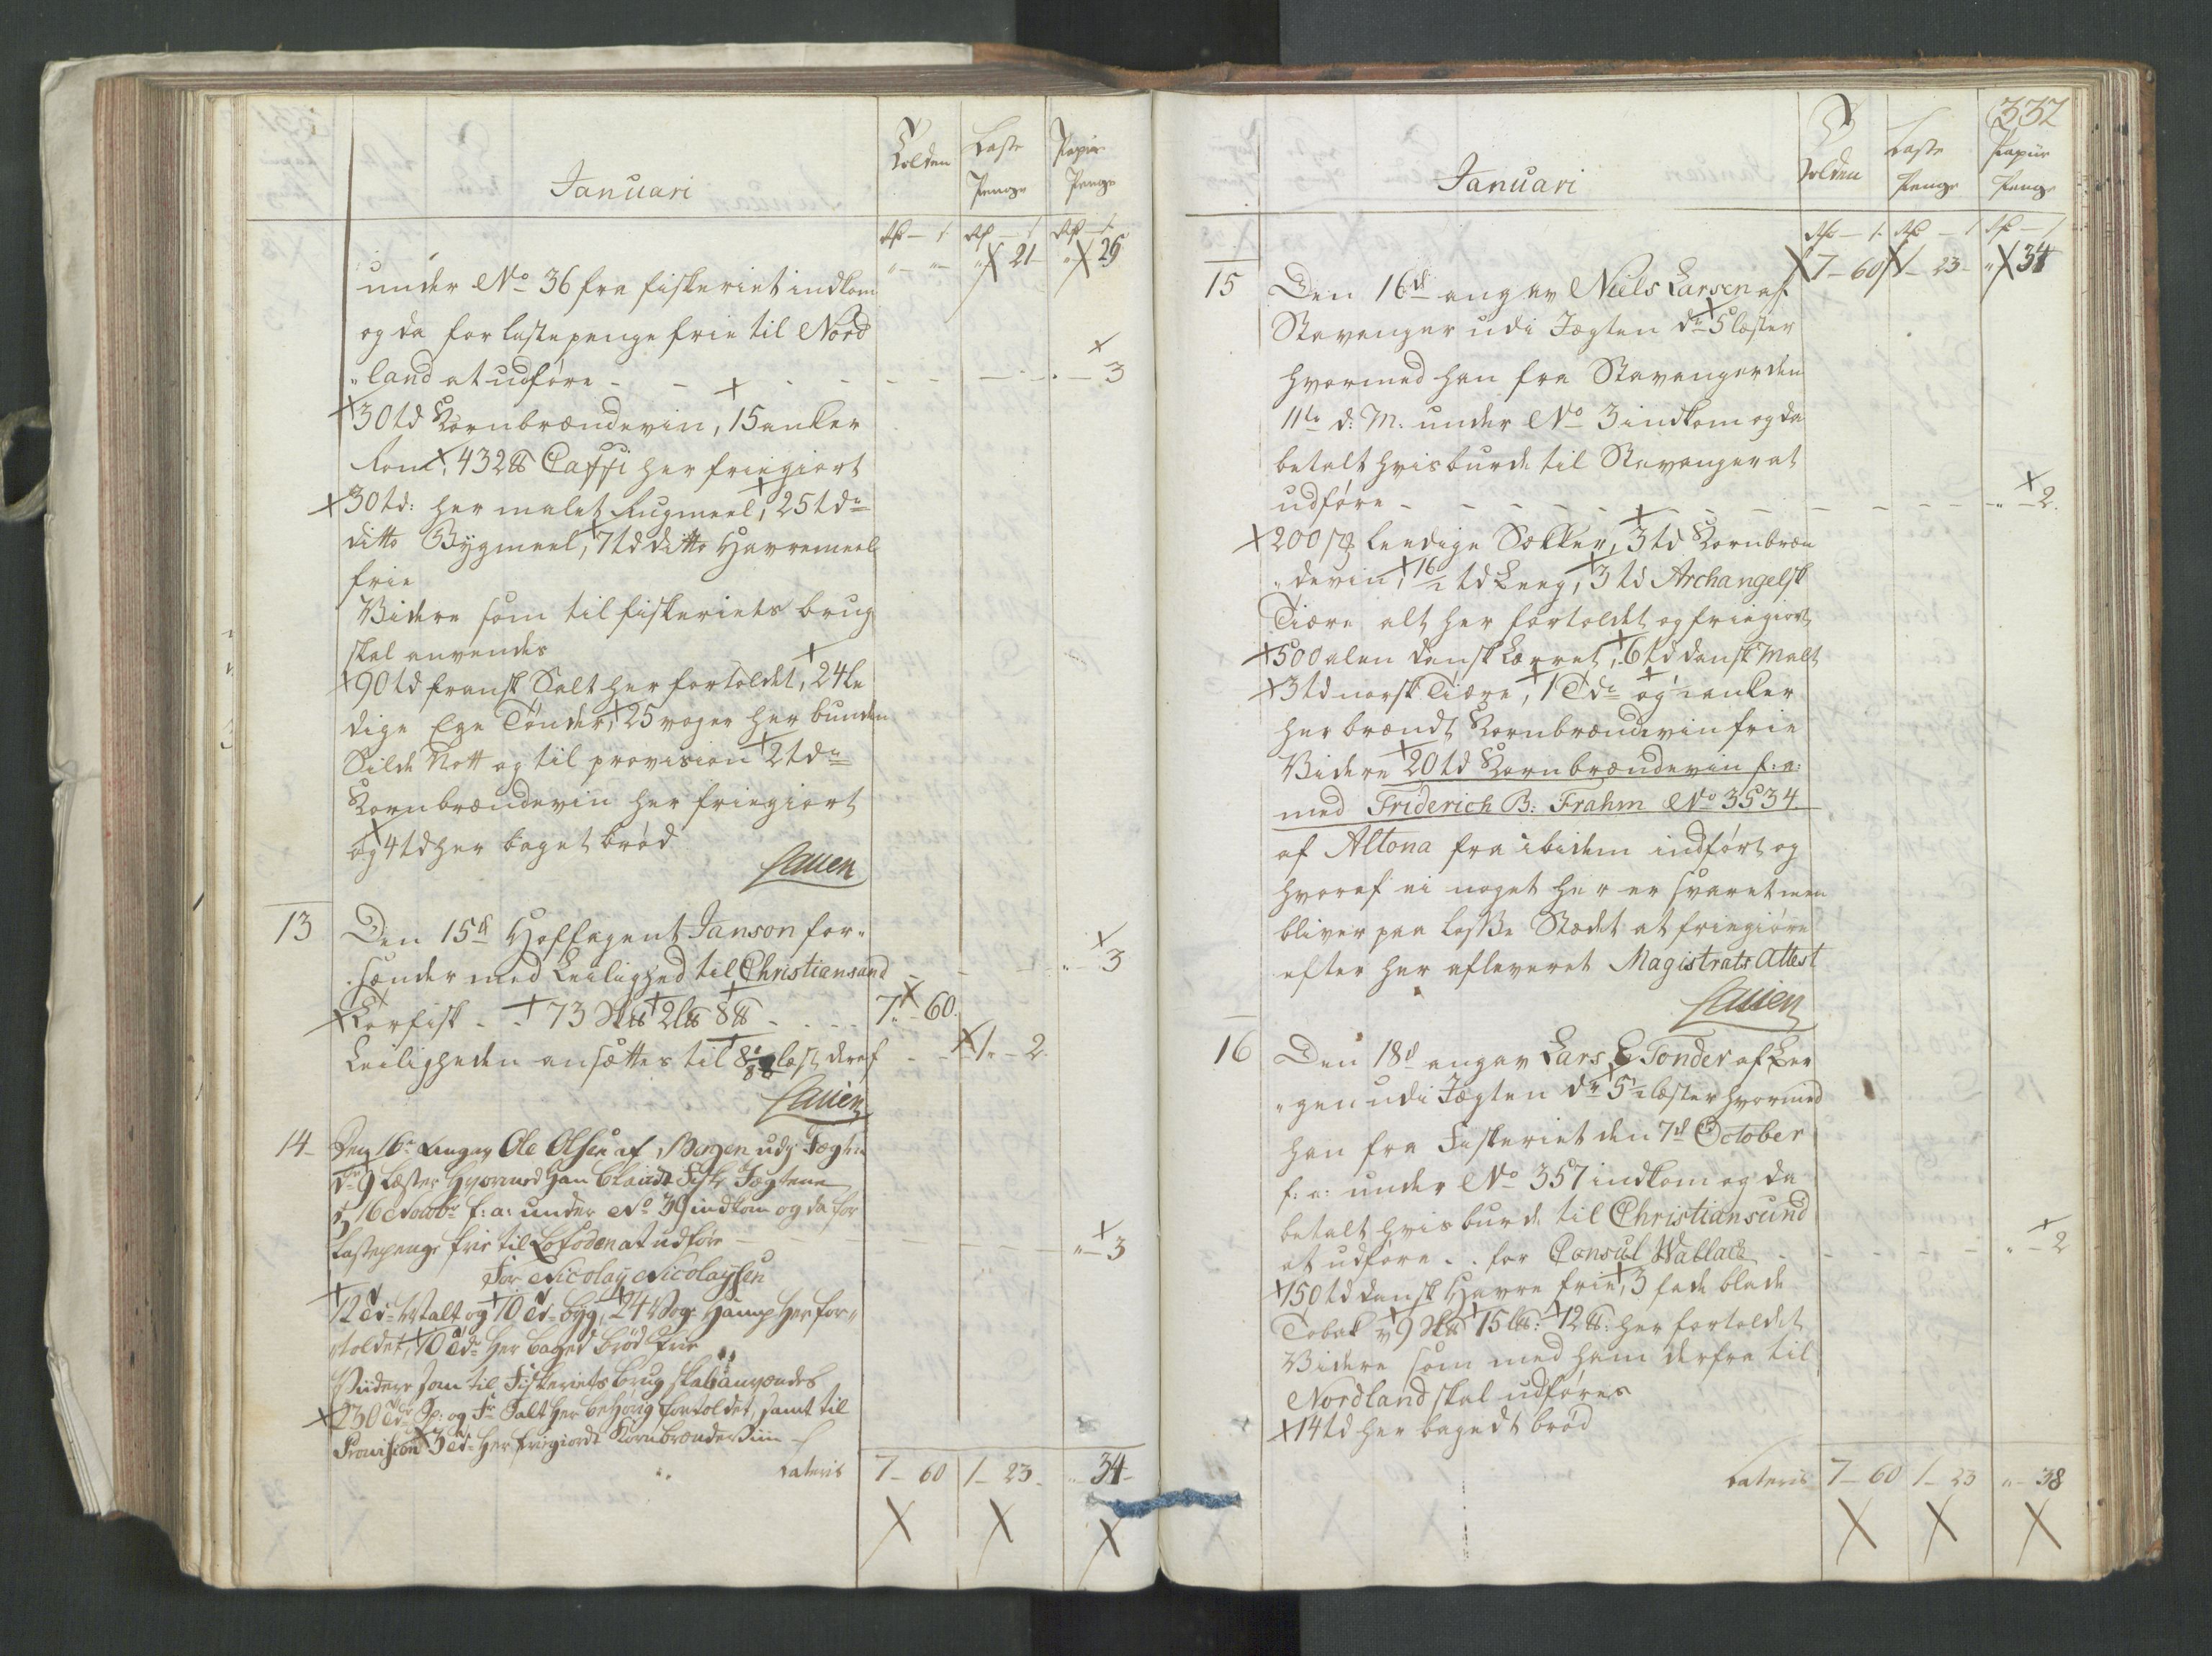 Januari
Tolden
Laste
Penge
Papir
Penge
" — " — " 21 " 29
under No 36 fra fiskeriet indkom
og da for lastepenge frie til Nord
"land at udføre - - - - - - " - 3
30 td Kornbrændevin, 15 anker
Rom, 432 ℔ Caffi her friegiort
30 td: her malet Rugmeel, 25 tdr
ditto Bygmeel, 7 td ditto Havremeel
frie
Videre som til fiskeriets brug
skal anvendes
90 td fransk Salt her fortoldet, 24 le
dige Ege Tønder, 25 voger her bunden
Silde Nott og til provision 2 tdr
Kornbrændevin her friegiort
og 4 td her baget brød
Lauen
13 Den 15d Hoffagent Janson for-
sænder med Leilighed til Christiansand - - - " - 3
Rørfisk - - 73 2 8 ℔ - - - 7 - 60
Leiligheden ansættes til 8 læst deraf - - 1 - 2
Lauen
14 Den 16de Angav Ole Olsen af Bergen udj Jægten
dr 9 Læster Hvormed Han blandt Fiske Jægtene
d 16 Novobr f: a: under No 39 indkom og da for
Lastepenge frie til Lofoden at udføre - - - " - 3
For Nicolay Nicolaysen
12 Td Malt og 10 Td Byg, 24 Vog Hamp Her for-
toldet, 10 Tdr Her Baged Brød Frie
Viidere som til Fiskeriets brug skal anvendes
230 Tdr Sp: og Fr Salt Her behørig fortoldet, samt til
Provision 3 Td Her friegiordt Kornbrændeviin
Lateris 7 - 60 1 - 23 - " - 34 -
332
Januari
Tolden
Laste
Penge
Papiir
Penge
7 - 60 1 - 23 - " 34
15 Den 16d angav Niels Larsen af
Stavanger udi Jægten dr 5 læster
hvormed han fra Stavanger den
11te d: M: under No 3 indkom og da
betalt hvis burde til Stavanger at
udføre - - - - - - - - " - 2
200 leedige Sækker, 3 td Kornbræn
"devin, 16/2 td Leeg, 3 td Archangelsk
Tiære alt her fortoldet og friegiort
500 alen dansk Lærret, 6 td dansk Malt
3 td norsk Tiære, 1 Tdr og 1/2 anker
her brændt Kornbrændevin frie
Videre 20 td Kornbrændevin f: a:
med Friderich B: Frahm No 3534
af Altona fra ibidem indført og
hvoraf ei noget her er svaret men
bliver paa losse Stædet at friegiøre
efter her afleveret Magistrats Attest
Lauen
16 Den 18d angav Lars E Tonder af Ber
"gen udi Jægten dr 5 1/2 læster hvormed
han fra Fiskeriet den 7d October
f: a: under No 357 indkom og da
betalt hvis burde til Christiansund
at udføre - - for Consul Wallace - - - - " - 2
150 td dansk Havre frie, 3 fade blade
Tobak 9 15 12 ℔: her fortoldet
Videre som med ham derfra til
Nordland skal udføres
14 td her bagedt brød
Lateris 7 - 60 1 - 23 " - 38